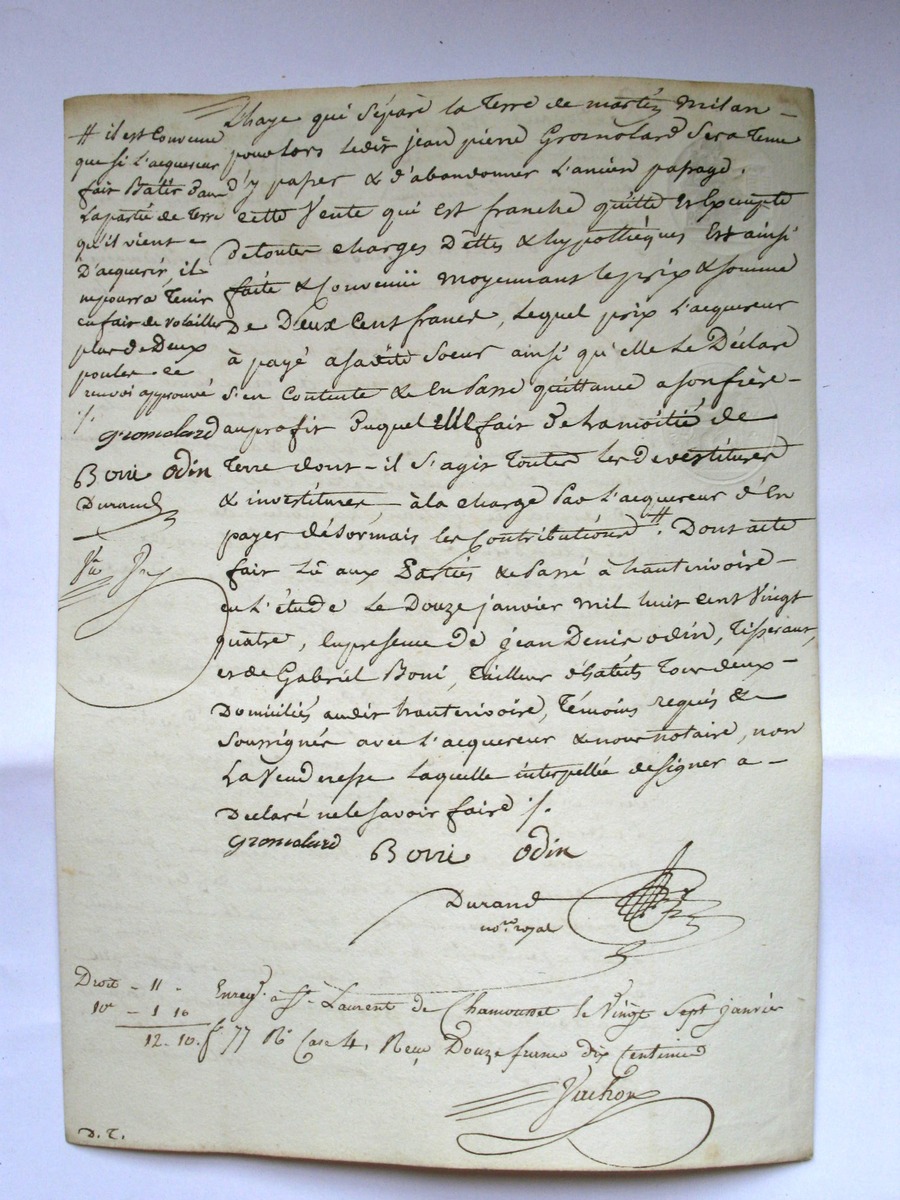 L'haye qui séparè la Terre de martin milan
pour lors ledit jean pierre Gromolard Sera Tenu
d'y passer & d'abandonner L'ancien passage.
cette Vente qui est franche quitte et Exempte
de toutes charges dettes & hypothèques Est ainsi
faite & Convenüe moyennant le prix & somme
De Deux Cent francs, Lequel prix L'acquereur
à payé a sadite Soeur ainsi qu'elle Le Déclare
s'en Contente & en Passe quittance a son frère
au profit Duquel Elle fait De La moitié de
Terre dont il S'agit Toutes les devestitures
& investitures à la charge Par L'acquereur d'En
payer désormais les Contributions #. Dont acte
fait Lû aux Parties & Passé à hauterivoire
en L'étude Le Douze janvier mil huit cent Vingt
quatre, En presence De jean Denis odin, Tisserant,
et de Gabriel Boni, Tailleur d'habits Tous deux
Domiciliés audit hauterivoire, Témoins requis &
Soussignés avec L'acquereur & nous notaire, non
La Venderesse Laquelle interpellée de signer a
Declaré ne le savoir faire ./.
gromolard Boni odin
Durand
no.re royal
# il est Convenu
que si L'acquereur
fait Batir Dans
La partie de Terre
qu'il vient
D'acquerir, il
ne pourra Tenir
en fait de volailles
plus de Deux
poules ce
renvoi approuvé
./.
gromolard
Boni odin
Durand
Droit - 11 "
10e - 1 10
12 - 10
Enregt. à St. Laurent de Chamousset le Vingt Sept janvier
f° 77 R° Case 4. Reçu Douze francs dix Centimes
Vachon
D. T.